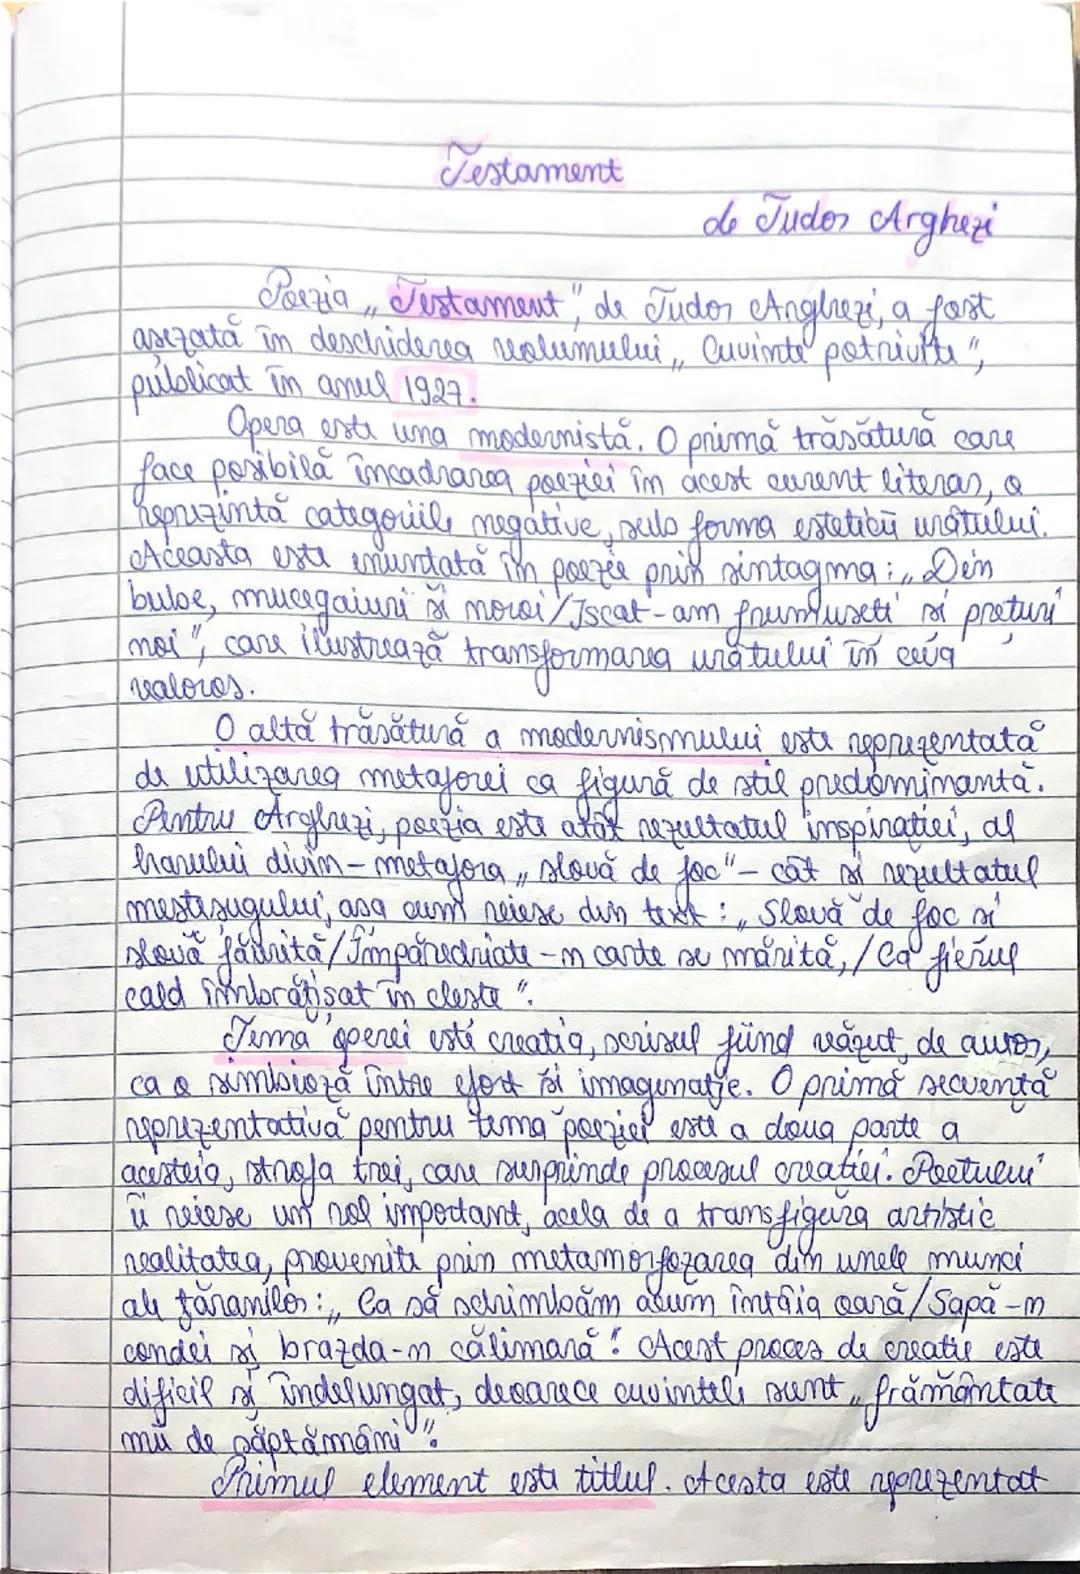 Testament
de Tudor Arghezi
Poezia „Testament", de Tudor Arghezi, a fost
așezată în deschiderea volumului „Cuvinte potrivite",
publicat în anul 1927.
Opera este una modernistă. O primă trăsătură care
face posibilă încadrarea poeziei în acest curent literar, o
reprezintă categoriile negative, sub forma esteticii urâtului.
Aceasta este enunțată în poezie prin sintagma: „Din
bube, mucegaiuri și noroi/Iscat-am frumuseți și prețuri
noi", care ilustrează transformarea urâtului în ceva
valoros.
O altă trăsătură a modernismului este reprezentată
de utilizarea metaforei ca figură de stil predominantă.
Pentru Arghezi, poezia este atât rezultatul inspirației, al
harului divin - metafora „slovă de foc" - cât și rezultatul
meșteșugului, așa cum reiese din text: „Slovă de foc și
slovă făurită/Împărechiate-n carte se mărită,/Ca fierul
cald îmbrățișat în clește".
Tema operei este creația, scrisul fiind văzut, de autor,
ca o simbioză între efort și imaginație. O primă secvență
reprezentativă pentru tema poeziei este a doua parte a
acesteia, strofa trei, care surprinde procesul creației. Poetului
îi reiese un rol important, acela de a transfigura artistic
realitatea, provenite prin metamorfozarea din unele munci
ale țăranilor: „Ca să schimbăm acum întâia oară/Sapa-n
condei și brazda-n călimară". Acest proces de creație este
dificil și îndelungat, deoarece cuvintele sunt „frământate
mii de săptămâni".
Primul element este titlul. Acesta este reprezentat